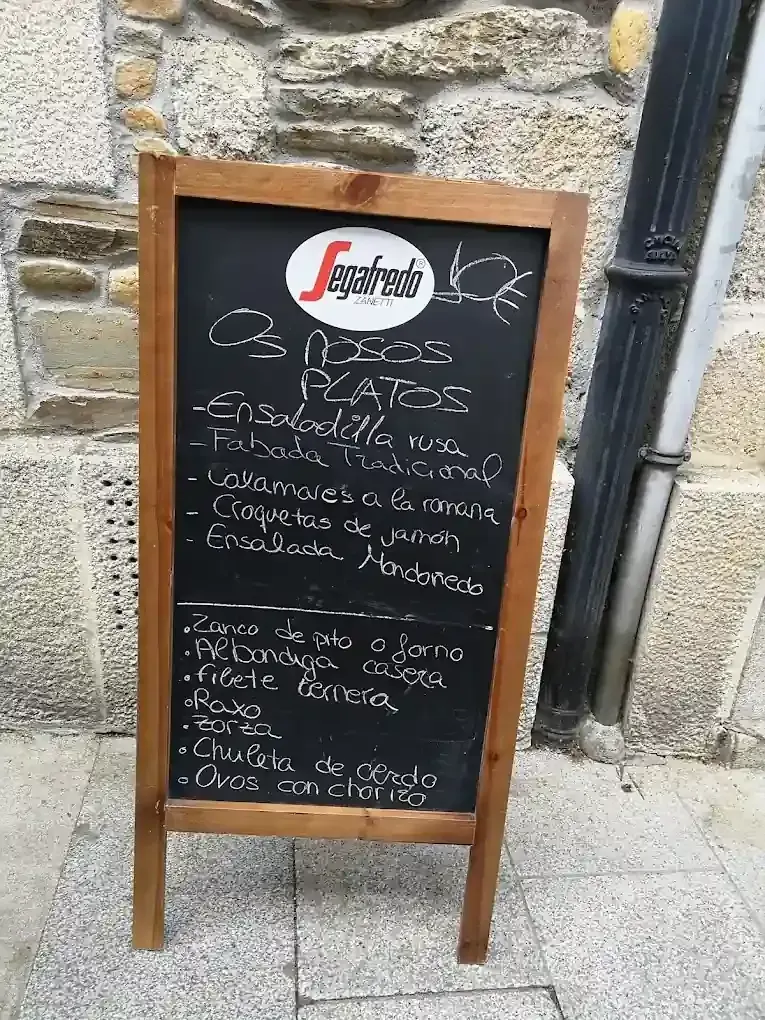 Segafredo®
ZANETTI
Os nosos
PLATOS
- Ensaladilla rusa
- Fabada Tradicional
- Calamares a la romana
- Croquetas de jamón
- Ensalada Mondoñedo
• Zanco de pito o forno
• Albondiga casera
• filete ternera
• Raxo
• zorza
• Chuleta de cerdo
• Ovos con chorizo